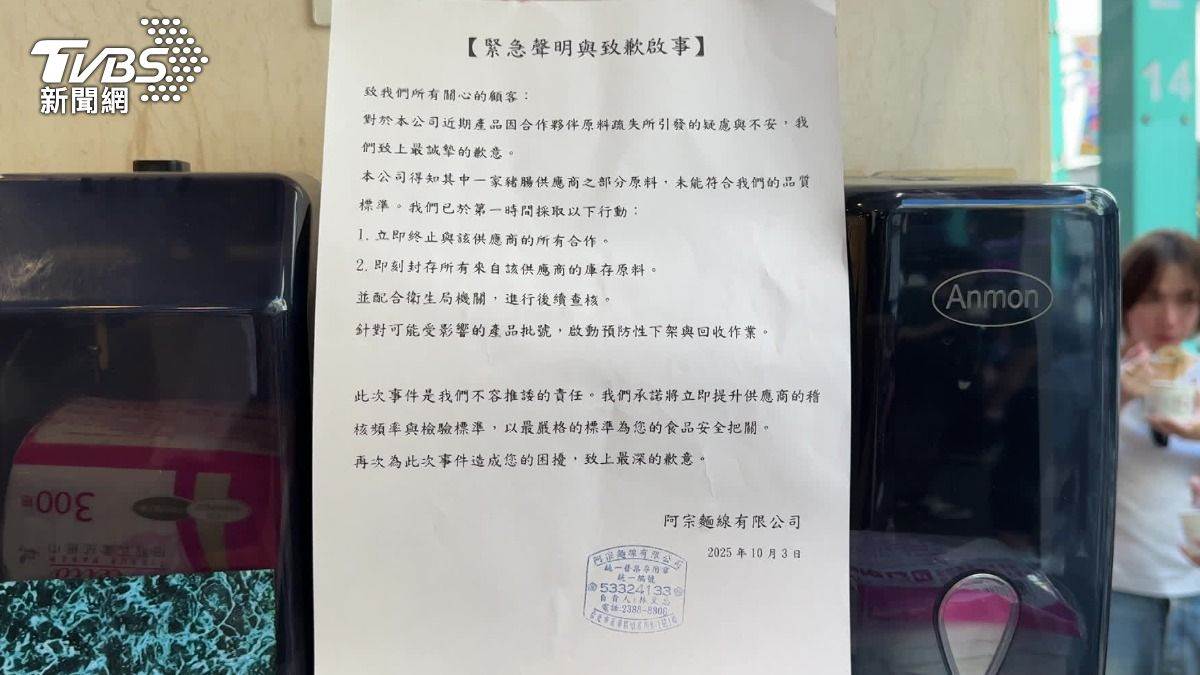 TVBS
新聞網
【緊急聲明與致歉啟事】
致我們所有關心的顧客：
對於本公司近期產品因合作夥伴原料疏失所引發的疑慮與不安，我
們致上最誠摯的歉意。
本公司得知其中一家豬腸供應商之部分原料，未能符合我們的品質
標準。我們已於第一時間採取以下行動：
1. 立即終止與該供應商的所有合作。
2. 即刻封存所有來自該供應商的庫存原料。
並配合衛生局機關，進行後續查核。
針對可能受影響的產品批號，啟動預防性下架與回收作業。
此次事件是我們不容推諉的責任。我們承諾將立即提升供應商的稽
核頻率與檢驗標準，以最嚴格的標準為您的食品安全把關。
再次為此次事件造成您的困擾，致上最深的歉意。
阿宗麵線有限公司
2025 年 10 月 3 日
阿宗麵線有限公司
統一發票專用章
統一編號
53324133
負責人：林文
電話:2388-8808
Anmon
14
300